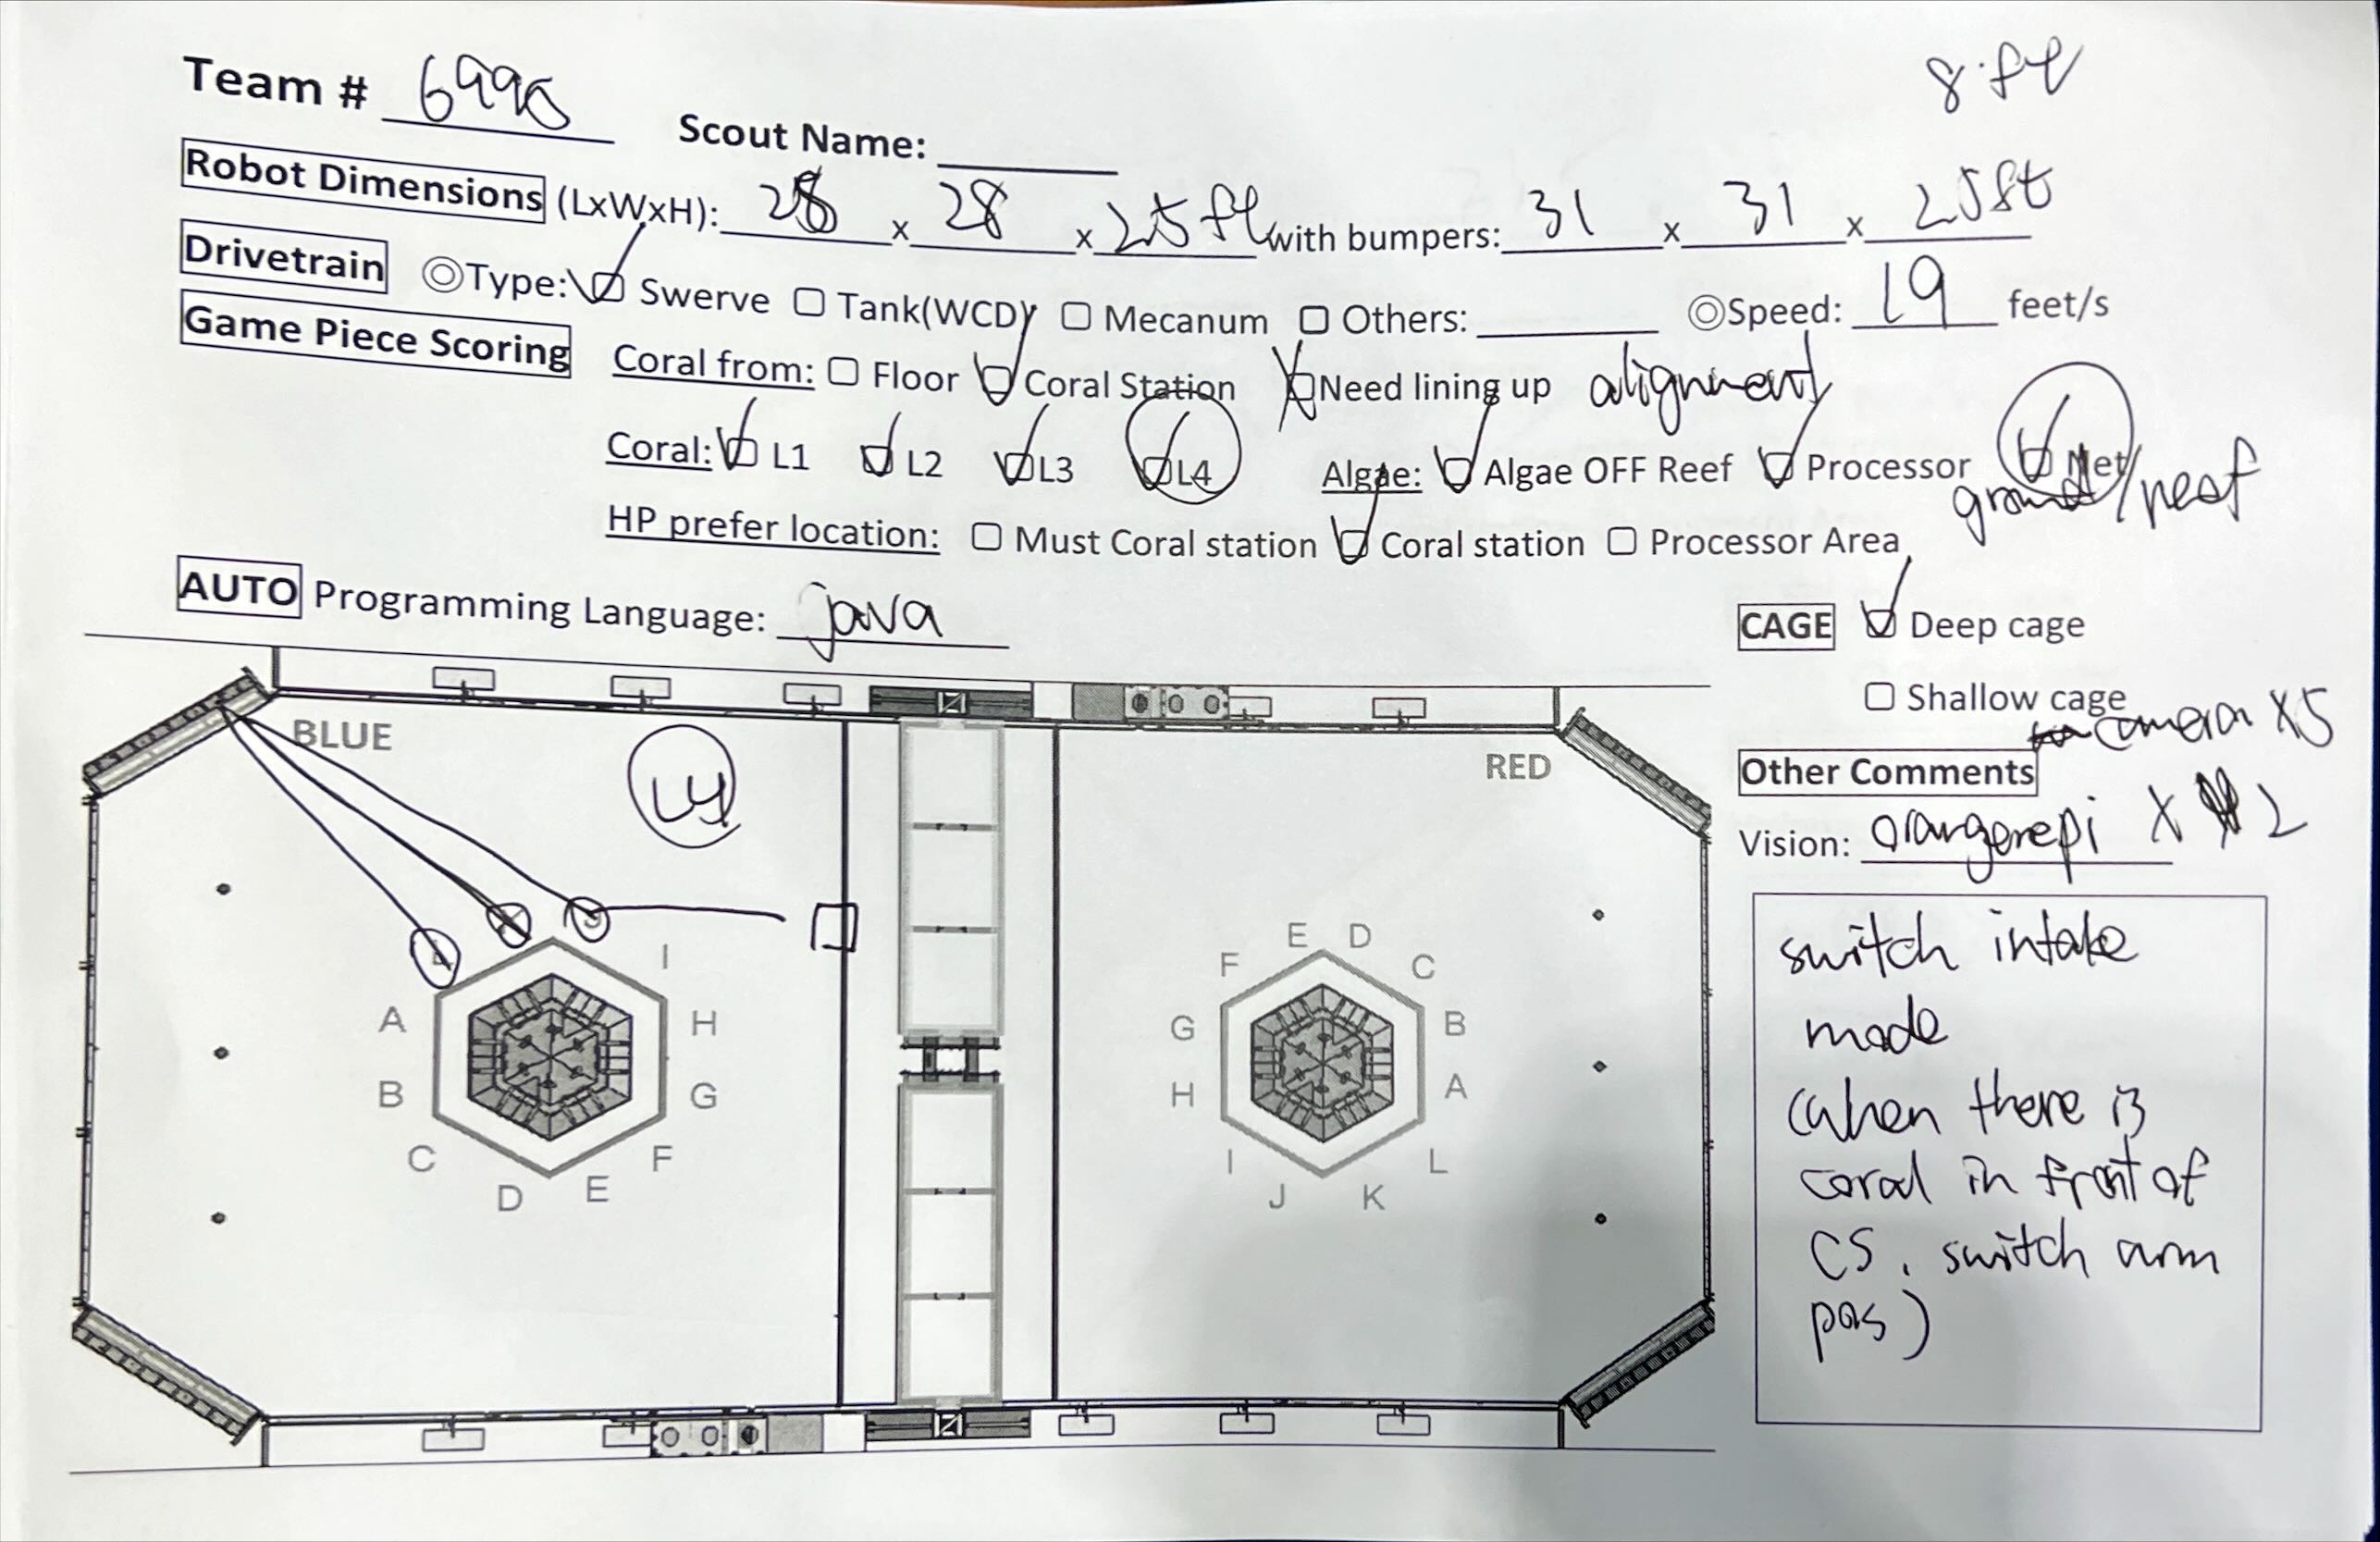 8 ft
Team # 6998 Scout Name:
Robot Dimensions (LxWxH): 28 x 28 x 2.5 ft with bumpers: 31 x 31 x 2.5 ft
Drivetrain ◎Type: Swerve Tank(WCD) Mecanum Others: ◎Speed: 19 feet/s
Game Piece Scoring Coral from: Floor Coral Station Need lining up alignment
Coral: L1 L2 L3 L4 Algae: Algae OFF Reef Processor Net
ground/reef
HP prefer location: Must Coral station Coral station Processor Area
AUTO Programming Language: java
CAGE Deep cage
Shallow cage
camera x5
Other Comments
Vision: orangepi x 2
BLUE
L4
RED
J
L
I
A
H
B
G
C
F
D
E
E
D
F
C
G
B
H
A
I
L
J
K
switch intake
mode
(when there is
coral in front of
CS, switch arm
pos)